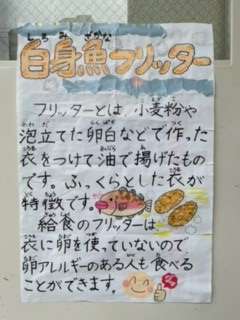 白身魚フリッター
フリッターとは、小麦粉や
泡立てた卵白などで作った
衣をつけて油で揚げたもの
です。ふっくらとした衣が
特徴です。
給食のフリッターは
衣に卵を使っていないので
卵アレルギーのある人も食べる
ことができます。